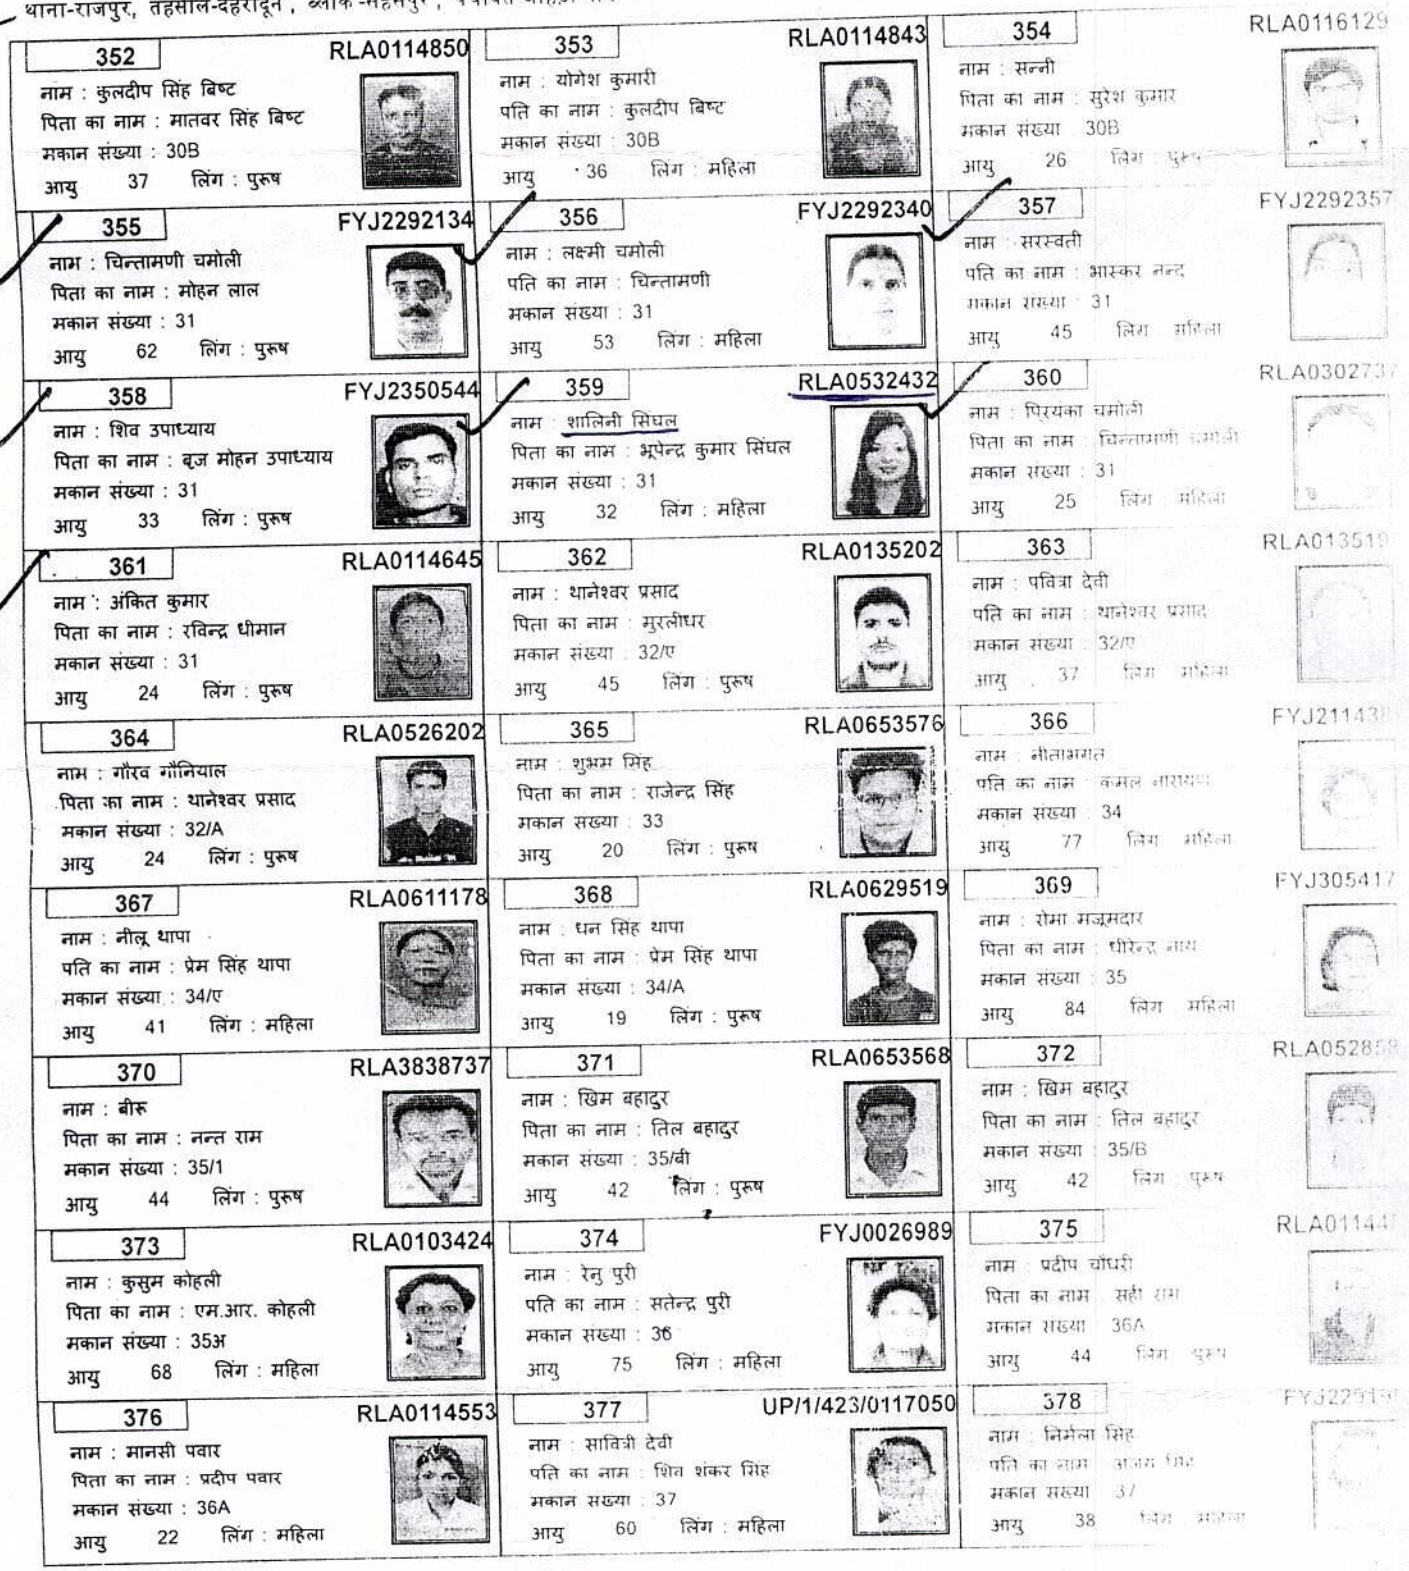 थाना-राजपुर, तहसील-देहरादून, ब्लॉक-सहसपुर,
352 RLA0114850
नाम : कुलदीप सिंह बिष्ट
पिता का नाम : मातवर सिंह बिष्ट
मकान संख्या : 30B
आयु 37 लिंग : पुरूष
353 RLA0114843
नाम : योगेश कुमारी
पति का नाम : कुलदीप बिष्ट
मकान संख्या : 30B
आयु 36 लिंग : महिला
354 RLA0116129
नाम : सन्नी
पिता का नाम : सुरेश कुमार
मकान संख्या 30B
आयु 26 लिंग : पुरूष
355 FYJ2292134
नाम : चिन्तामणी चमोली
पिता का नाम : मोहन लाल
मकान संख्या : 31
आयु 62 लिंग : पुरूष
356 FYJ2292340
नाम : लक्ष्मी चमोली
पति का नाम : चिन्तामणी
मकान संख्या : 31
आयु 53 लिंग : महिला
357 FYJ2292357
नाम : सरस्वती
पति का नाम : भास्कर नन्द
मकान संख्या : 31
आयु 45 लिंग महिला
358 FYJ2350544
नाम : शिव उपाध्याय
पिता का नाम : बृज मोहन उपाध्याय
मकान संख्या : 31
आयु 33 लिंग : पुरूष
359 RLA0532432
नाम : शालिनी सिंघल
पिता का नाम : भूपेन्द्र कुमार सिंघल
मकान संख्या : 31
आयु 32 लिंग : महिला
360 RLA0302737
नाम : पिरयंका चमोली
पिता का नाम : चिन्तामणी चमोली
मकान संख्या : 31
आयु 25 लिंग : महिला
361 RLA0114645
नाम : अंकित कुमार
पिता का नाम : रविन्द्र धीमान
मकान संख्या : 31
आयु 24 लिंग : पुरूष
362 RLA0135202
नाम : थानेश्वर प्रसाद
पिता का नाम : मुरलीधर
मकान संख्या : 32/ए
आयु 45 लिंग : पुरूष
363 RLA013519
नाम : पवित्रा देवी
पति का नाम : थानेश्वर प्रसाद
मकान संख्या : 32/ए
आयु 37 लिंग महिला
364 RLA0526202
नाम : गौरव गौनियाल
पिता का नाम : थानेश्वर प्रसाद
मकान संख्या : 32/A
आयु 24 लिंग : पुरूष
365 RLA0653576
नाम : शुभम सिंह
पिता का नाम : राजेन्द्र सिंह
मकान संख्या : 33
आयु 20 लिंग : पुरूष
366 FYJ211438
नाम : नीताभगत
पति का नाम कमल नारायण
मकान संख्या : 34
आयु 77 लिंग महिला
367 RLA0611178
नाम : नीलू थापा
पति का नाम : प्रेम सिंह थापा
मकान संख्या : 34/ए
आयु 41 लिंग : महिला
368 RLA0629519
नाम : धन सिंह थापा
पिता का नाम : प्रेम सिंह थापा
मकान संख्या : 34/A
आयु 19 लिंग : पुरूष
369 FYJ305417
नाम : रोमा मजूमदार
पिता का नाम : धीरेन्द्र नाथ
मकान संख्या : 35
आयु 84 लिंग महिला
370 RLA3838737
नाम : बीरू
पिता का नाम : नन्त राम
मकान संख्या : 35/1
आयु 44 लिंग : पुरूष
371 RLA0653568
नाम : खिम बहादुर
पिता का नाम : तिल बहादुर
मकान संख्या : 35/बी
आयु 42 लिंग : पुरूष
372 RLA052858
नाम : खिम बहादुर
पिता का नाम : तिल बहादुर
मकान संख्या : 35/B
आयु 42 लिंग : पुरूष
373 RLA0103424
नाम : कुसुम कोहली
पिता का नाम : एम.आर. कोहली
मकान संख्या : 35अ
आयु 68 लिंग : महिला
374 FYJ0026989
नाम : रेनु पुरी
पति का नाम : सतेन्द्र पुरी
मकान संख्या : 36
आयु 75 लिंग : महिला
375 RLA01144
नाम : प्रदीप चौधरी
पिता का नाम सही राम
मकान संख्या 36A
आयु 44 लिंग पुरूष
376 RLA0114553
नाम : मानसी पवार
पिता का नाम : प्रदीप पवार
मकान संख्या : 36A
आयु 22 लिंग : महिला
377 UP/1/423/0117050
नाम : सावित्री देवी
पति का नाम : शिव शंकर सिंह
मकान संख्या : 37
आयु 60 लिंग : महिला
378
नाम : निर्मला सिंह
पति का नाम सिंह
मकान संख्या 37
आयु 38 लिंग महिला